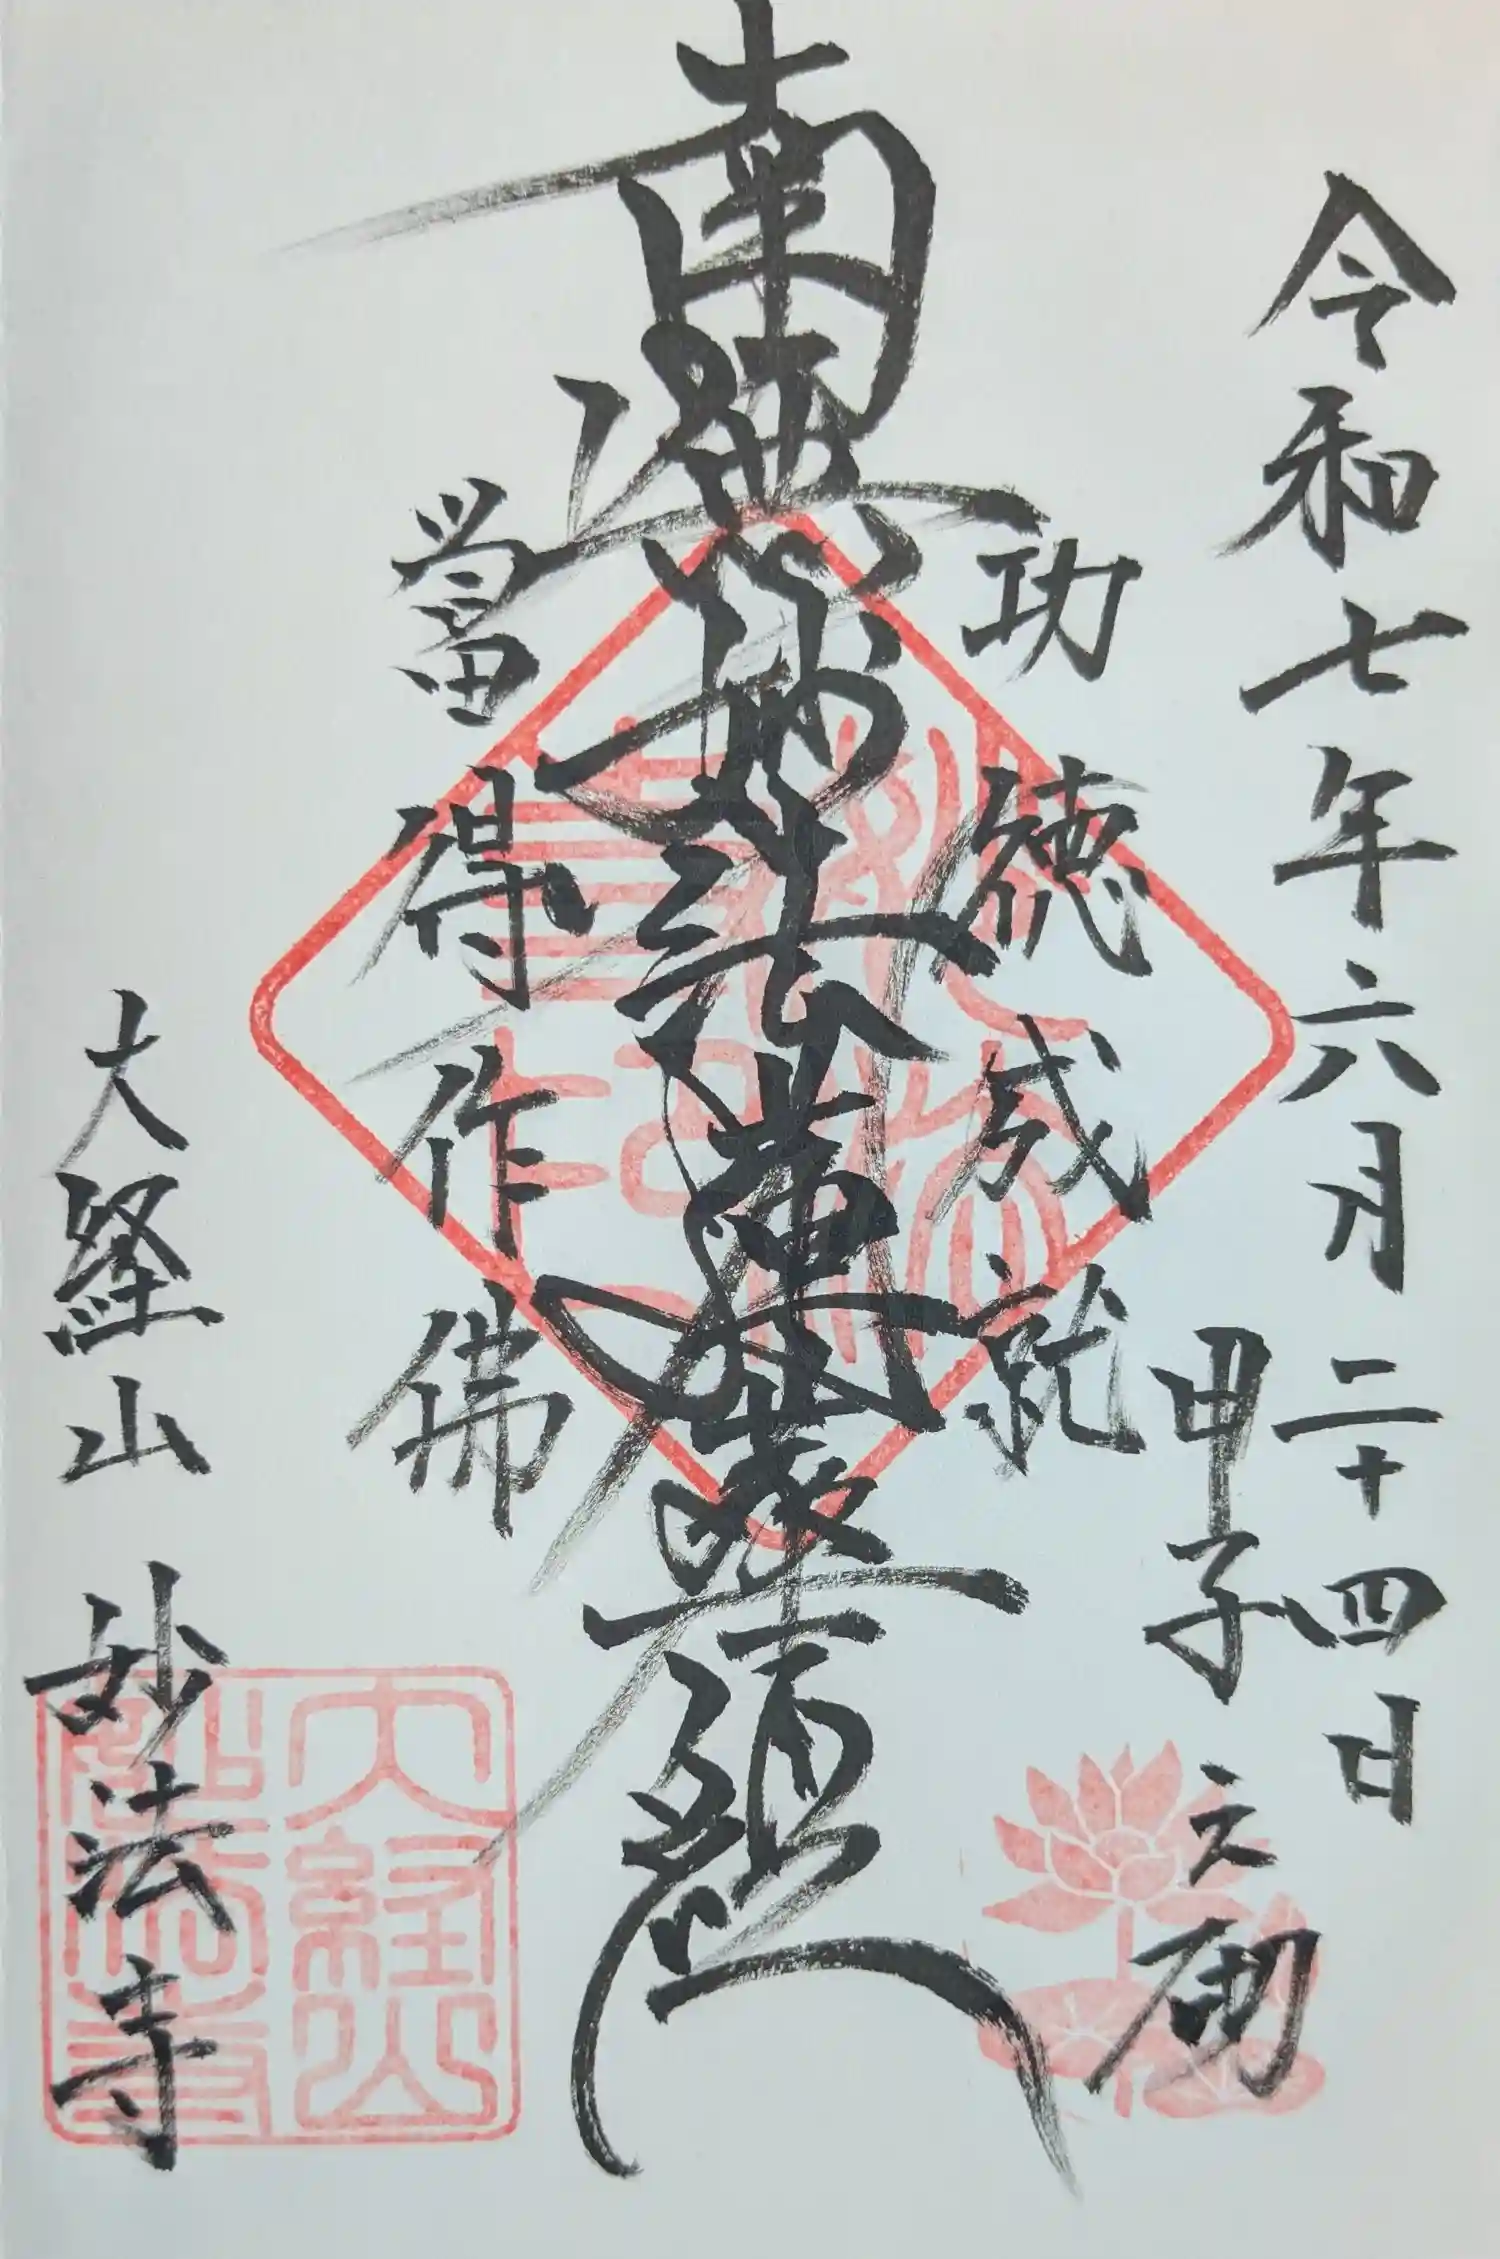 令和七年六月二十四日
甲子之砌
功徳成就
南無妙法蓮華経
當得作佛
大経山 妙法寺
大経山
妙法寺